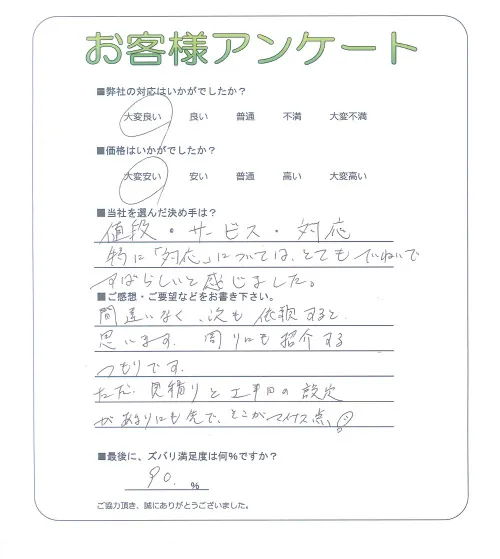 お客様アンケート
■弊社の対応はいかがでしたか?
大変良い 良い 普通 不満 大変不満
■価格はいかがでしたか?
大変安い 安い 普通 高い 大変高い
■当社を選んだ決め手は?
値段・サービス・対応
特に「対応」については、とてもていねいで
すばらしいと感じました。
■ご感想・ご要望などをお書き下さい。
間違いなく、次も依頼すると
思います. 周りにも紹介する
つもりです.
ただ.見積りと工事日の設定
があまりにも先で、そこがマイナス点、
■最後に、ズバリ満足度は何%ですか?
90. %
ご協力頂き、誠にありがとうございました。